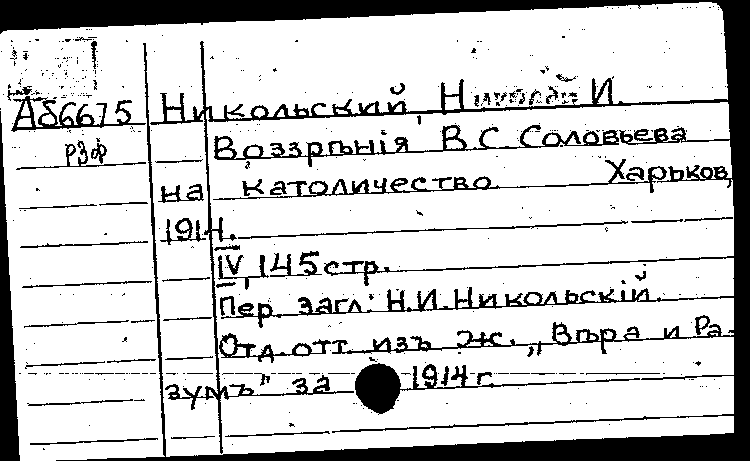 Аб6675 Никольский, Николай И.
рзф Воззрѣнія В.С. Соловьева
на католичество. Харьков,
1914.
IV, 145 стр.
Пер. загл: Н.И.Никольскій.
Отд. отт. изъ ж. „Вѣра и Ра-
зумъ" за 1914 г.